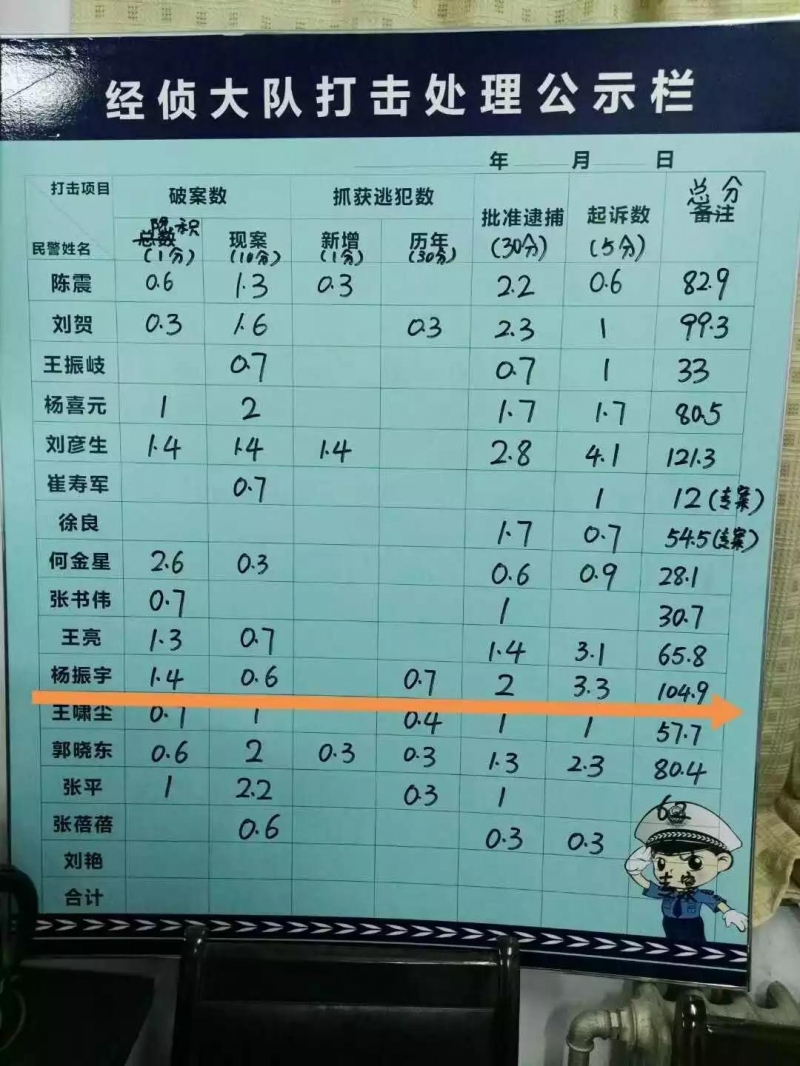 经侦大队打击处理公示栏
年 月 日
打击项目 破案数 抓获逃犯数 批准逮捕 起诉数 总分
备注
民警姓名 总数 现案 新增 历年 (30分) (5分)
(1分) (10分) (1分) (30分)
陈震 0.6 1.3 0.3 2.2 0.6 82.9
刘贺 0.3 1.6 0.3 2.3 1 99.3
王振岐 0.7 0.7 1 33
杨喜元 1 2 1.7 1.7 80.5
刘彦生 1.4 1.4 1.4 2.8 4.1 121.3
崔寿军 0.7 1 12(专案)
徐良 1.7 0.7 54.5(专案)
何金星 2.6 0.3 0.6 0.9 28.1
张书伟 0.7 1 30.7
王亮 1.3 0.7 1.4 3.1 65.8
杨振宇 1.4 0.6 0.7 2 3.3 104.9
王啸尘 0.7 1 0.4 1 1 57.7
郭晓东 0.6 2 0.3 0.3 1.3 2.3 80.4
张平 1 2.2 0.3 1
张蓓蓓 0.6 0.3 0.3
刘艳 专案
合计